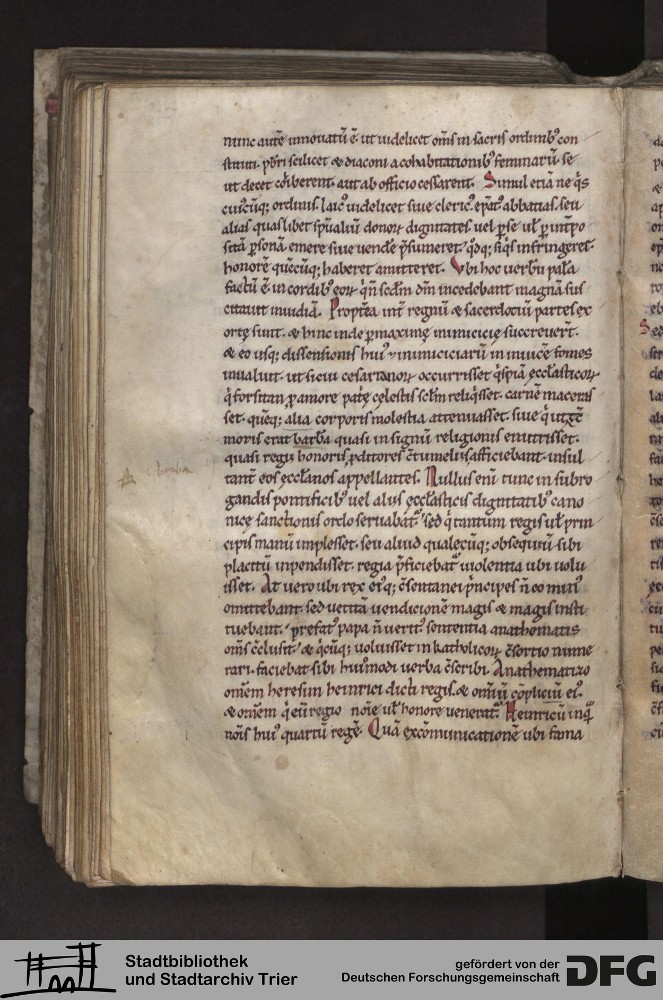 nunc autē innouatū ē. ut uidelicet om̄s in sacris ordinibꝰ con
stituti. pb̄ri scilicet & diaconi a cohabitationibꝰ feminarū se
ut decet cōiberent. aut ab officio cessarent. Simul etiā ne q̇s
cuiꝰcūq; ordinis. laicꝰ uidelicet siue clericꝰ. ep̄atꝰ abbatias. seu
alias quaslibet sp̄ualiū donoꝝ dignitates uel ꝑ se ul̄ ꝑ int̄po
sitā ꝑsonā emere siue uendēe p̄sumeret.
honorē quēcūq; haberet amitteret. Vbi hoc uerbū pala
factū ē. in cordibꝰ eoꝝ q̇ ñ scd̄m dm̄ incedebant magnā sus
citauit inuidiā. Propt̄ea int̄ regnū & sacerdotiū partes ex
ortę sunt. & hinc inde ꝑmaxime inimicicię succreuer̄t.
& eo usq; dissensionis huiꝰ ⁊ inimiciciarū in inuicē fomes
inualuit. ut sicui cesarianoꝝ occurrisset q̇spiā ęccl̄asticoꝝ
q̇ forsitan ꝓ amore pat̄ę celestis scl̄m reliq̇sset. carnē maceras
set. quēq; alia corporis molestia attenuasset. siue q̇ ut
moris erat barba quasi in signū religionis enutrisset.
quasi regii honoris ꝓditores c̄tumeliis afficiebant. insul
tant̄ eos ęccl̄anos appellantes. Nullus enī tunc in subro
gandis pontificibꝰ uel aliis ęccl̄asticis dignitatibꝰ cano
nicę sanctionis ordo seruabat̄. sed q̇ tantum regis ul̄ prin
cipis manū implesset. seu aliud qualecūq; obsequiū sibi
placitū inpendisset. regia p̄ficiebat̄ uiolentia ubi uolu
isset. At uero ubi rex eiꝰq; c̄sentanei p̄ncipes ñ eo minꝰ
omittebant. sed uetitā uendicionē magis & magis insti
tuebant. prefatꝰ papa ñ ueritꝰ sententia anathematis
om̄s c̄clusit. & q̇cūq; uoluisset in katholicoꝝ c̄sortio nume
rari. faciebat sibi huiꝰmodi uerba c̄scribi. Anathematizo
omēm heresim heinrici dicti regis. & omīū cōpliciū eiꝰ.
& omēm q̇ eū regio noīe ul̄ honore uenerat̄. Heinricū inq̄
noīs huiꝰ quartū regē. Quā excōmunicationē ubi fama
Stadtbibliothek
und Stadtarchiv Trier
gefördert von der
Deutschen Forschungsgemeinschaft
DFG